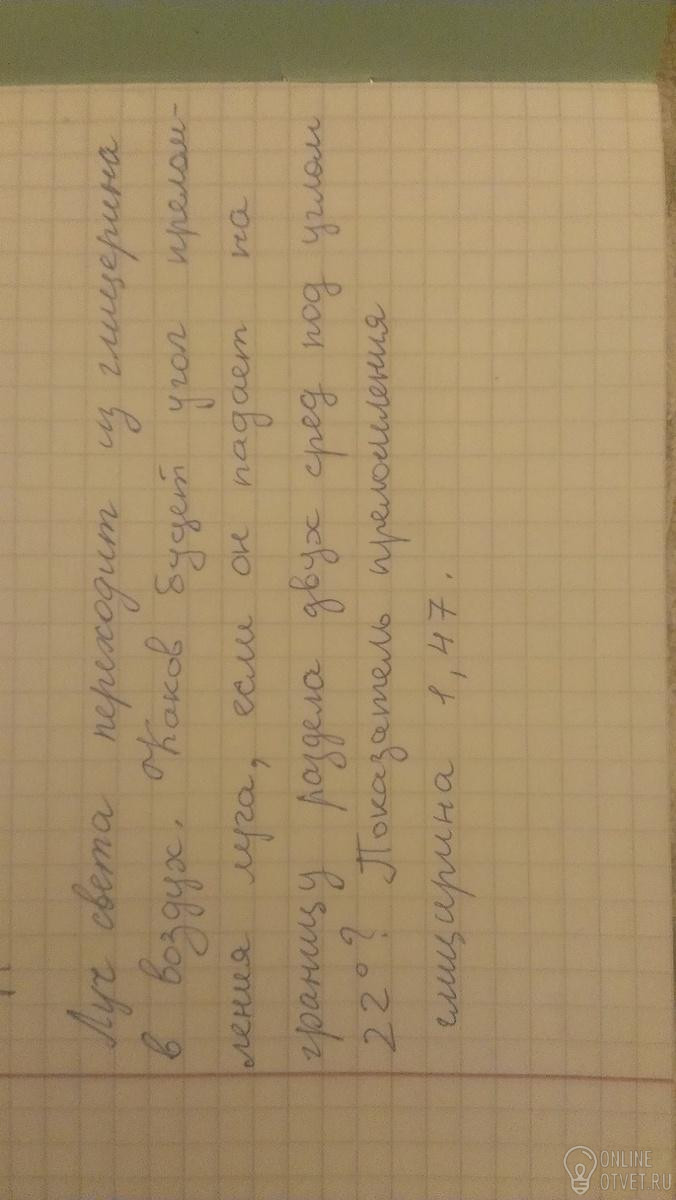 Луч света переходит из глицерина
в воздух. Каков будет угол прелом-
ления луча, если он падает на
границу раздела двух сред под углом
22°? Показатель преломления
глицирина 1,47.
ONLINE
OTVET.RU